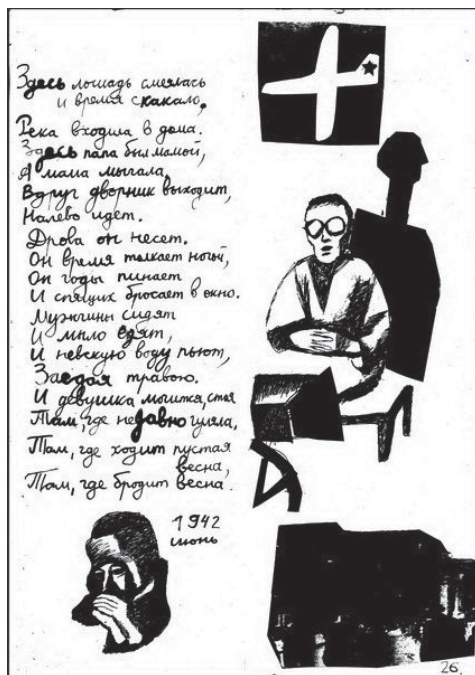 Здесь лошадь смеялась
и время скакало,
Река входила в дома.
Здесь папа был мамой,
А мама мычала,
Вдруг дворник выходит,
Налево идет.
Дрова он несет.
Он время толкает ногой,
Он годы пинает
И спящих бросает в окно.
Мужчины сидят
И мыло едят,
И невскую воду пьют,
Заедая травою.
И девушка мочится, стоя
Там, где недавно гуляла,
Там, где ходит пустая
весна,
Там, где бродит весна.
1942
июнь
26.